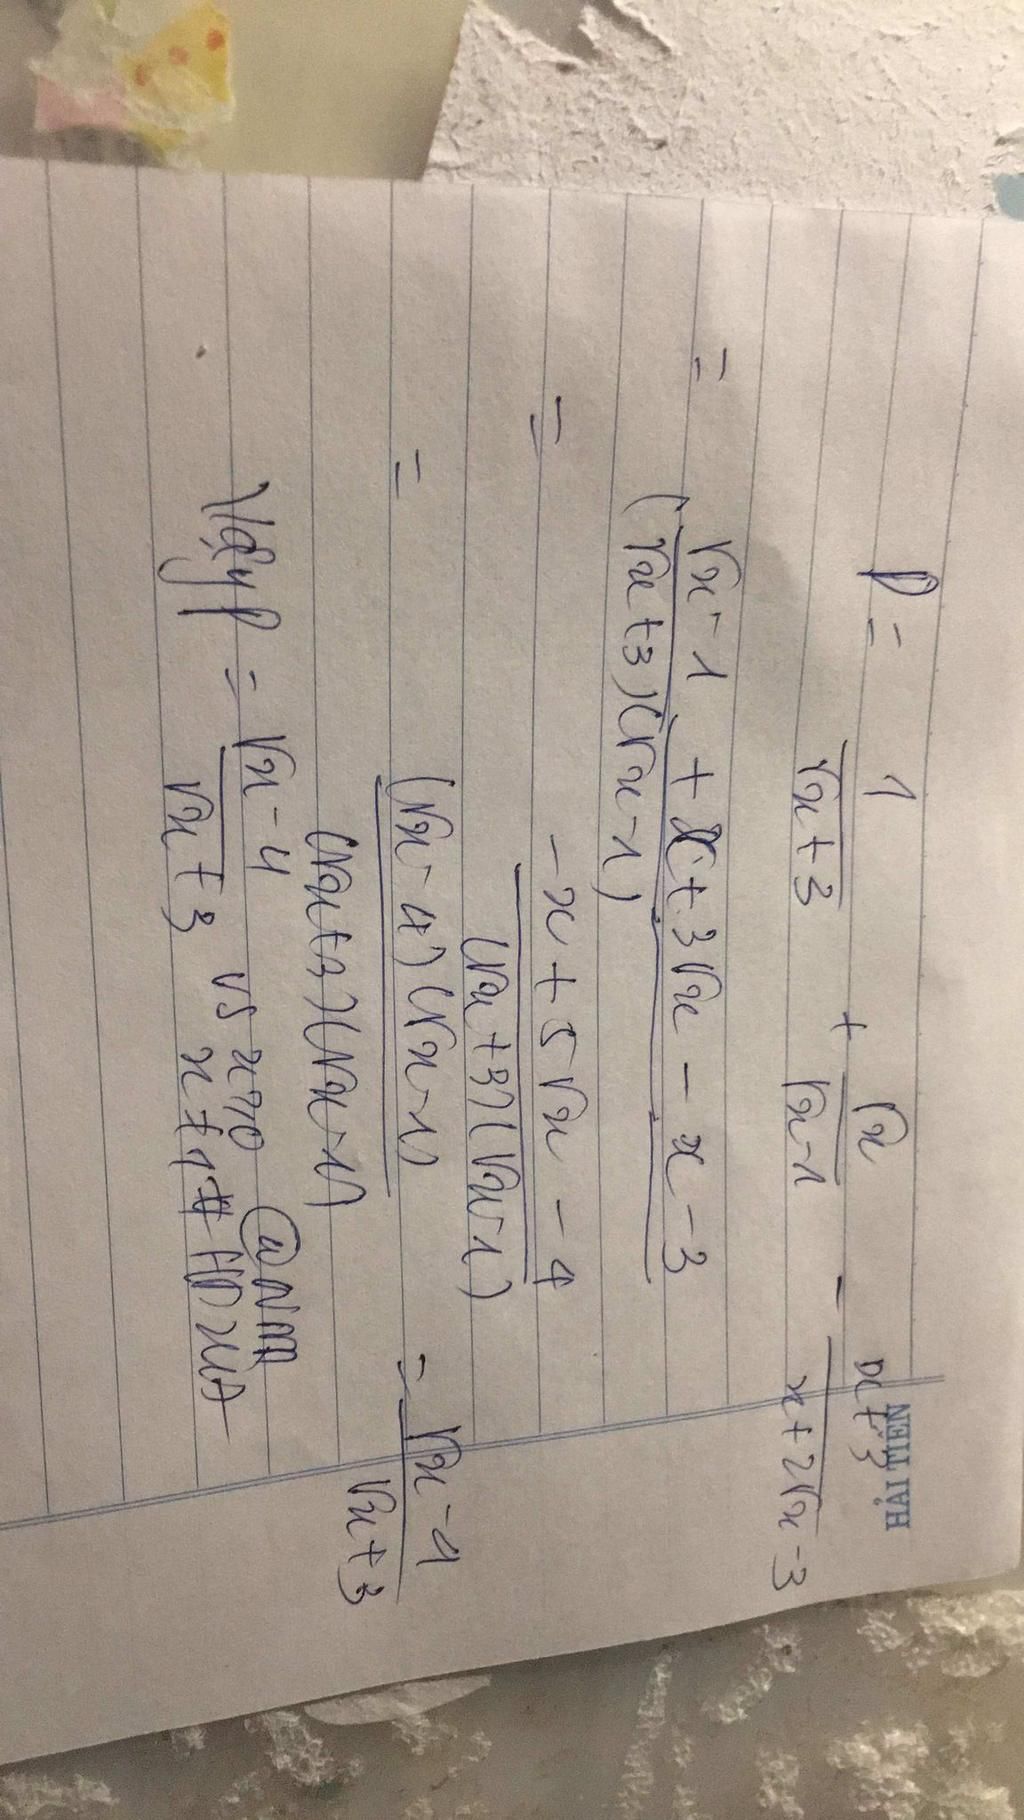 HẢI TIẾN
P = 1/(√x+3) + √x/(√x-1) - (x+3)/(x+2√x-3)
= (√x-1 + x+3√x - x-3)/((√x+3)(√x-1)
= (-x+5√x-4)/((√x+3)(√x-1))
= ((√x-4)(√x-1))/((√x+3)(√x-1)) = (√x-1)/(√x+3)
Vậy P = (√x-4)/(√x+3) vs x≥0 x≠1 #